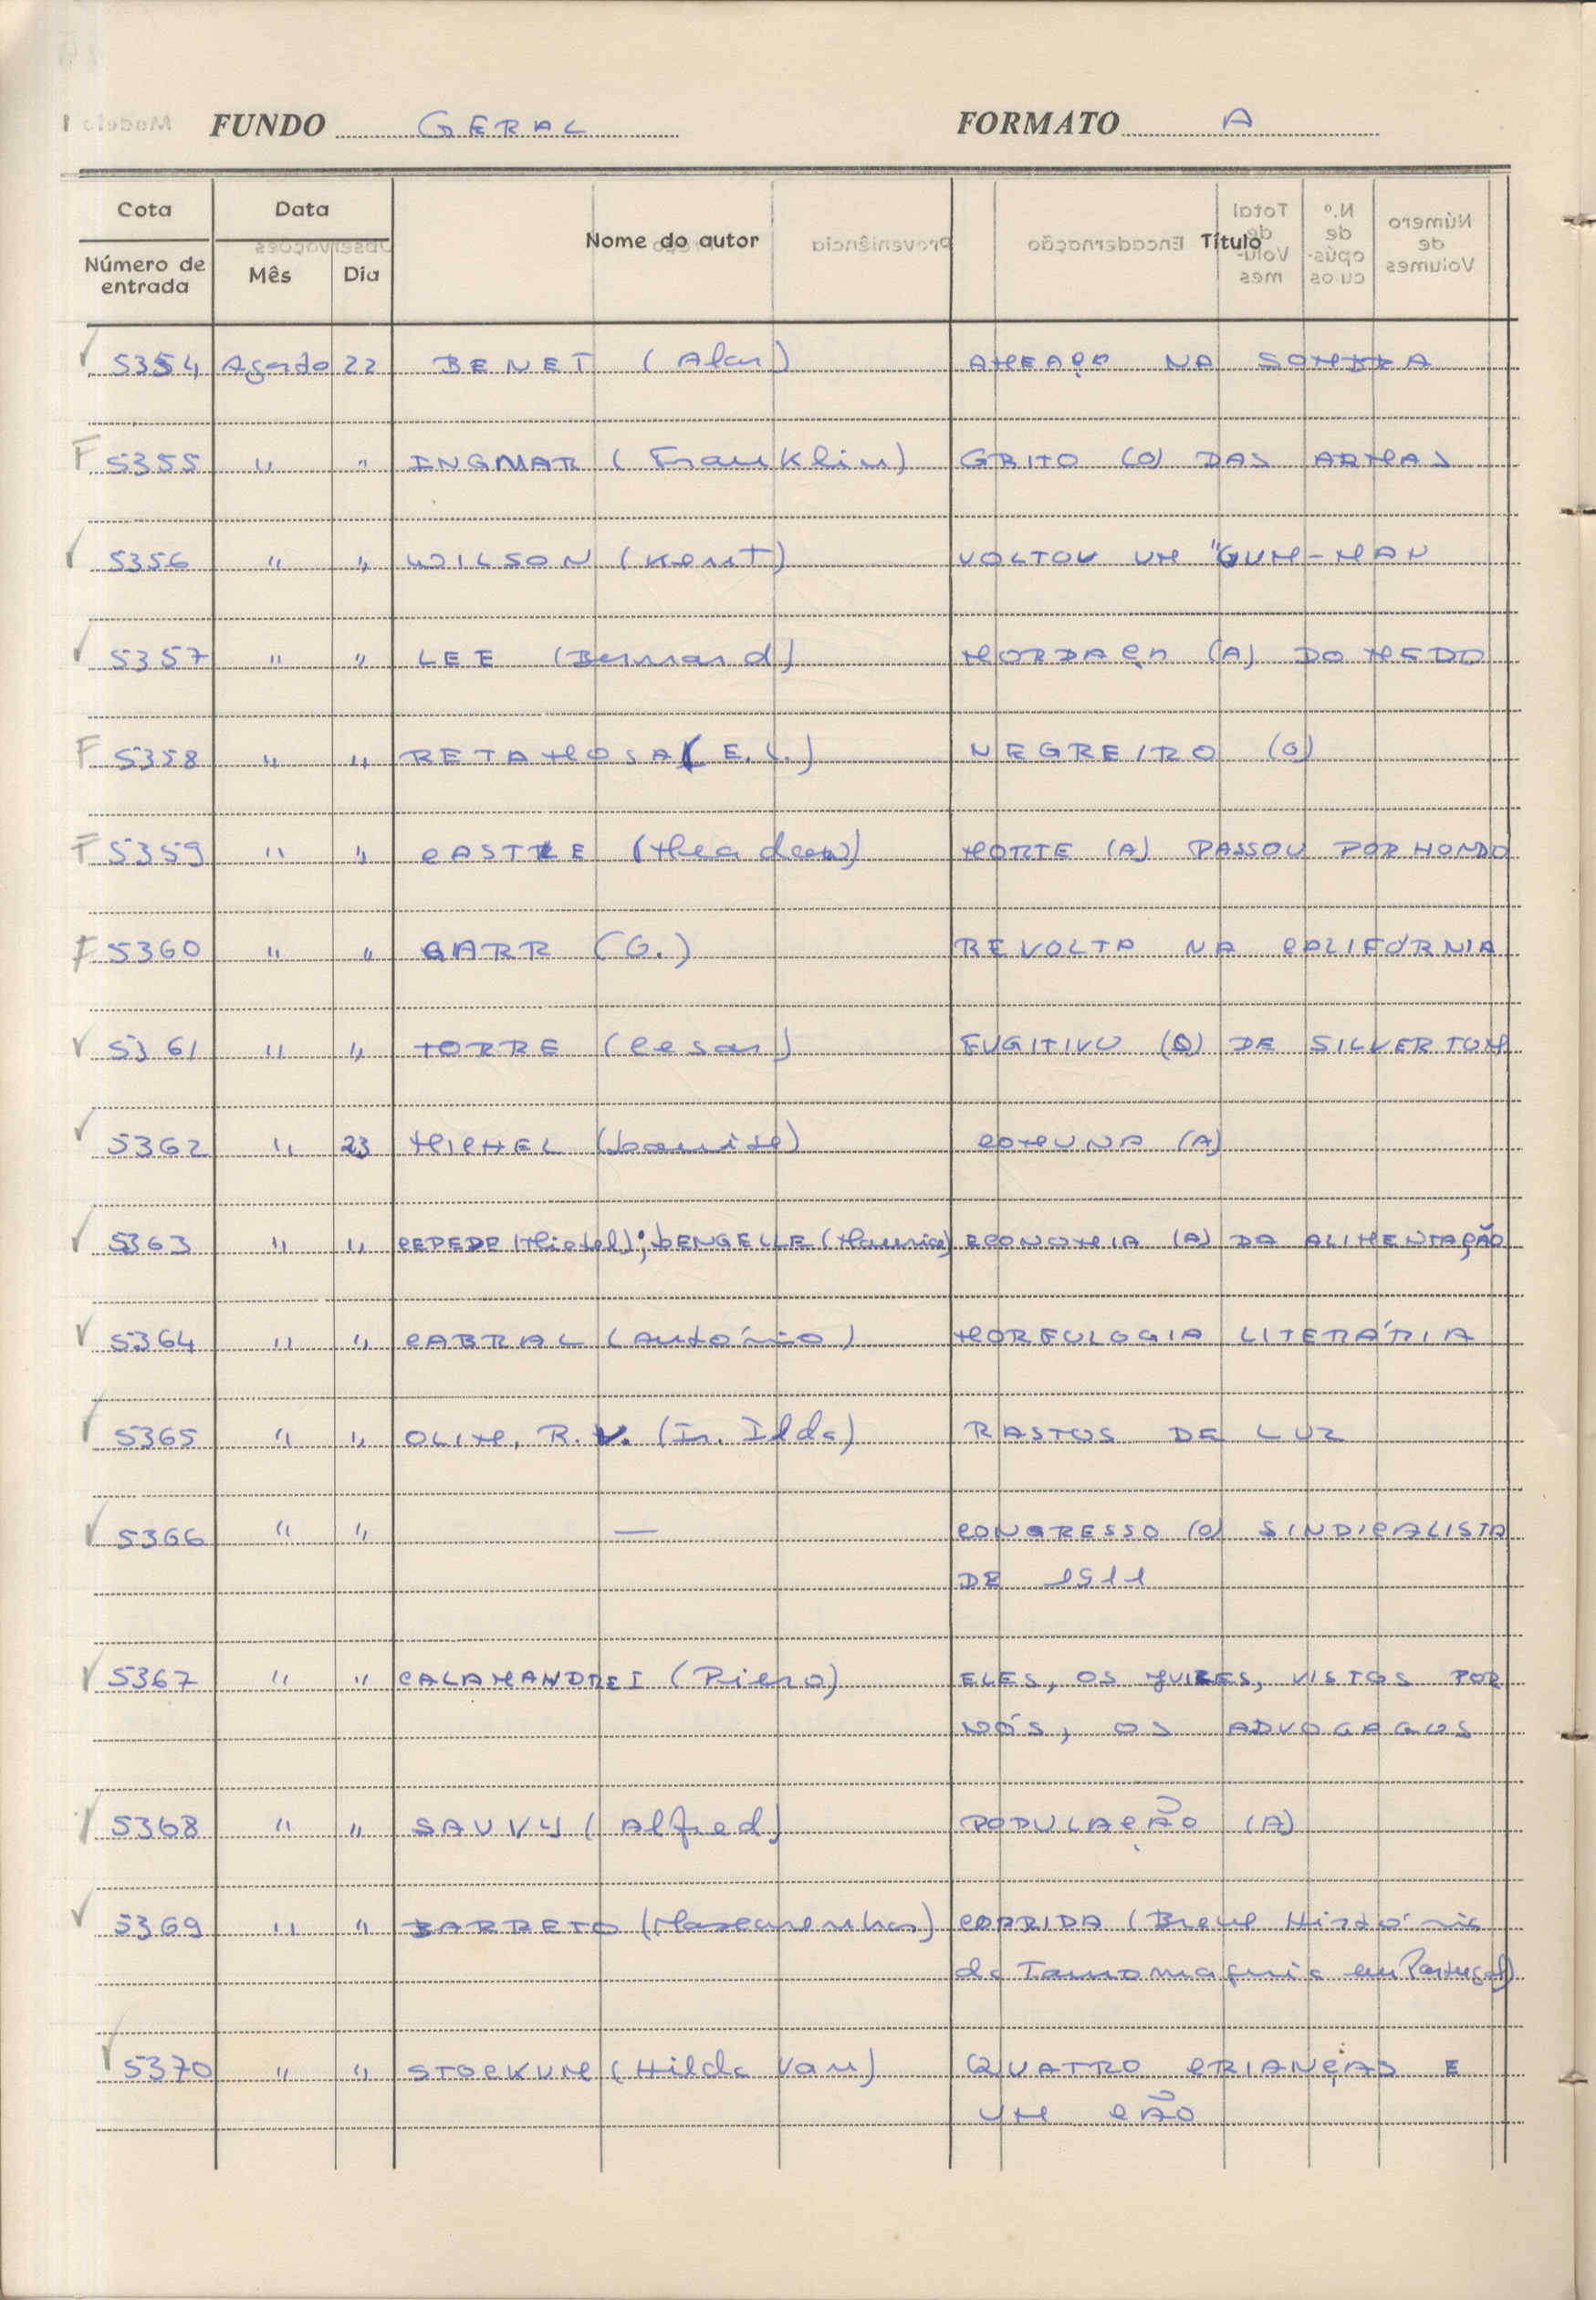 FUNDO GERAL FORMATO A
Cota Data Nome do autor Título
Número de entrada Mês Dia
✓ 5354 Agosto 22 BENET (Alan) AMEAÇA NA SOMBRA
F 5355 " " INGMAR (Franklin) GRITO (O) DAS ARMAS
✓ 5356 " " WILSON (Kent) VOLTOU UM "GUM-MAN
✓ 5357 " " LEE (Bernard) MORDAÇA (A) DO MEDO
F 5358 " " RETAMOSA (E. L.) NEGREIRO (O)
F 5359 " " CASTLE MORTE (A) PASSOU POR HONDO
F 5360 " " GARR (G.) REVOLTA NA CALIFÓRNIA
✓ 5361 " " TORRE (Cesar) FUGITIVO (O) DE SILVERTOM
✓ 5362 " 23 MICHEL (Louise) COMUNA (A)
✓ 5363 " " CEPEDE (Michel); LENGELLE (Maurice) ECONOMIA (A) DA ALIMENTAÇÃO
✓ 5364 " " CABRAL (António) MORFOLOGIA LITERÁRIA
✓ 5365 " " OLIM, R. V. (Ir. Ilda) RASTOS DE LUZ
✓ 5366 " " — CONGRESSO (O) SINDICALISTA
DE 1911
✓ 5367 " " CALAMANDREI (Piero) ELES, OS JUIZES, VISTOS POR
NÓS, OS ADVOGAGOS
✓ 5368 " " SAUVY (Alfred) POPULAÇÃO (A)
✓ 5369 " " BARRETO (Mascarenhas) CORRIDA (Breve História
da Tauromaquia em Portugal)
✓ 5370 " " STOCKUM (Hilda Van) QUATRO CRIANÇAS E
UM CÃO